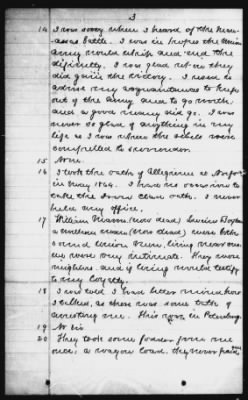 3
14 I was sorry when I heard of the Man-
assas Battle. I was in hopes the Union
army would whip and end the
difficulty. I was glad when they
did gain the victory. I used to
advise my acquaintances to keep
out of the army and to go north
and a good many did go. I was
never so glad of anything in my
life as I was when the rebels were
compelled to surrender.
15 None.
16 I took the oath of allegiance at Norfolk
in May 1864. I have no occasion to
take the Iron clad oath. I never
held any office.
17 William (now dead)
a wealthy man (now dead) were both
sound Union men, living near me
we were very intimate. They were
neighbors and if living would testify
to my loyalty.
18 I was told I had better mind how
I talked, as there was some talk of
arresting me. This was in Petersburg.
19 No sir.
20 They took some fodder from me
once; a wagon load, they never paid me